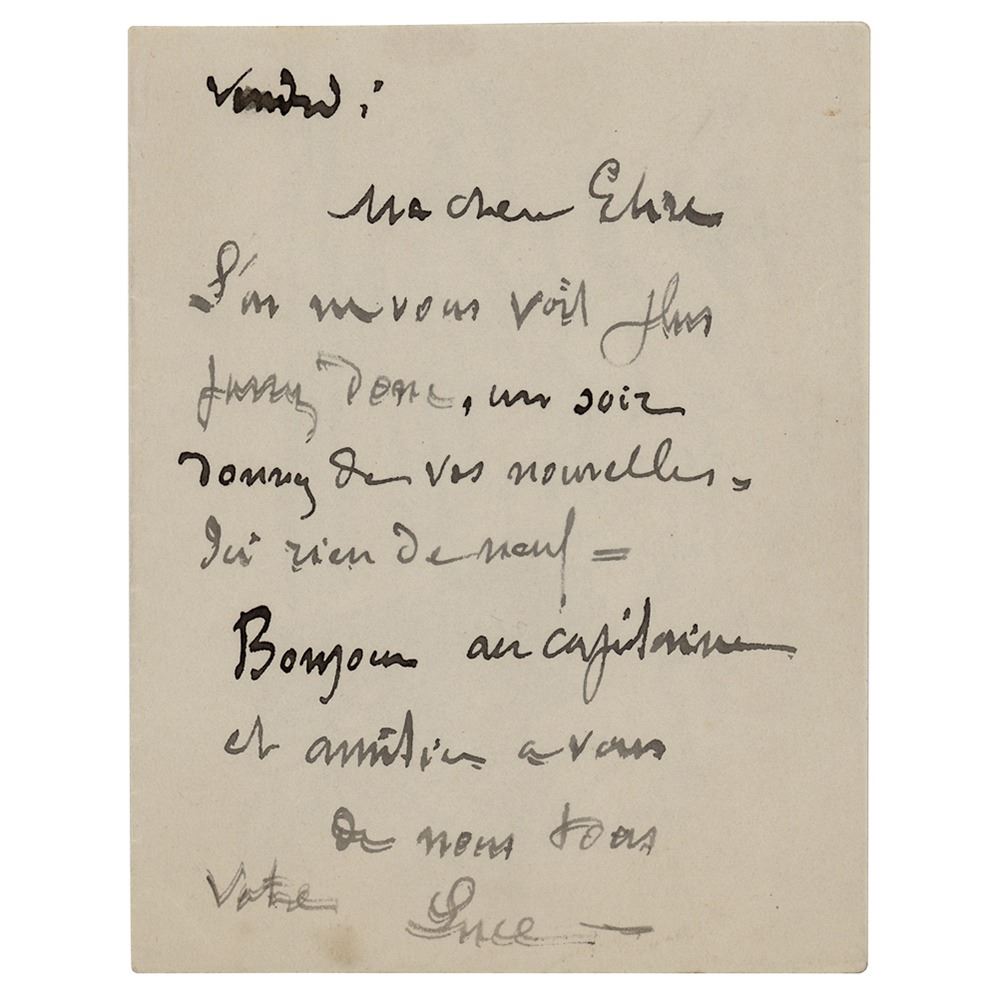 Vendredi
Ma chere Elise
L'on ne vous voit plus
donc, un soir
donnez de vos nouvelles =
Ici rien de neuf =
Bonjour au capitaine
et amitiés a vous
de nous tous
Votre Luce